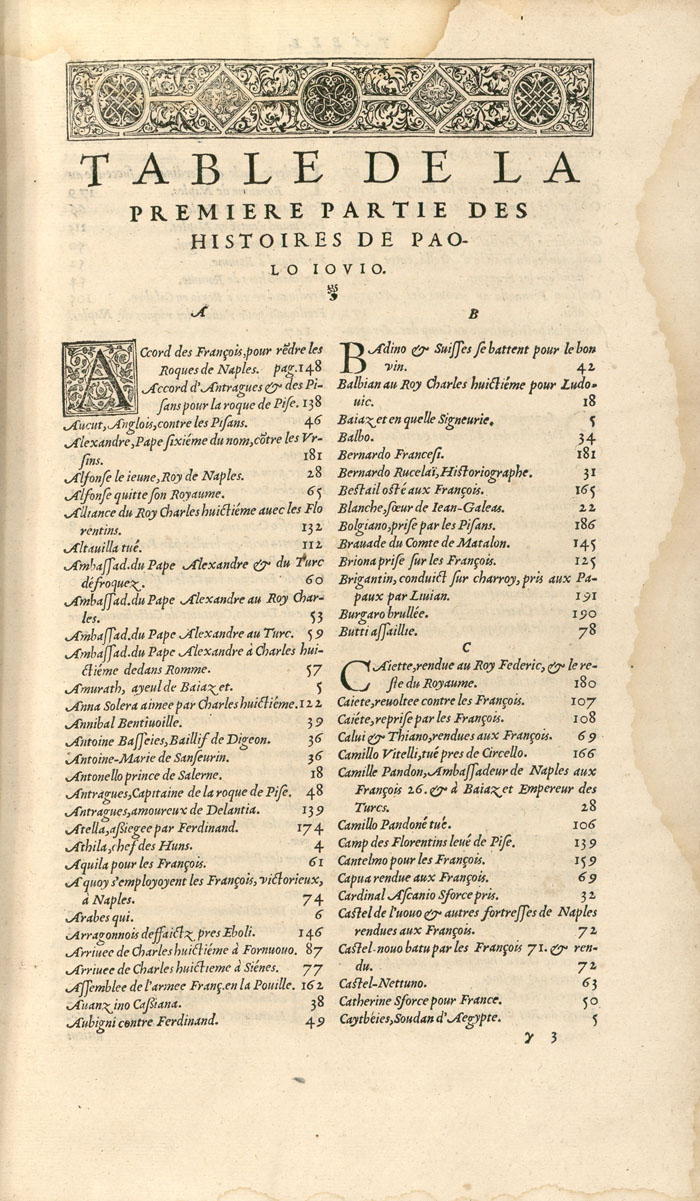 TABLE DE LA
PREMIERE PARTIE DES
HISTOIRES DE PAO-
LO IOVIO.
A
ACcord des François, pour rẽdre les
Roques de Naples. pag. 148
Accord d'Antragues & des Pi-
sans pour la roque de Pise. 138
Aucut, Anglois, contre les Pisans. 46
Alexandre, Pape sixiéme du nom, cõtre les Vr-
sins. 181
Alfonse le ieune, Roy de Naples. 28
Alfonse quitte son Royaume. 65
Alliance du Roy Charles huictiéme auec les Flo
rentins. 132
Altauilla tué. 112
Ambassad. du Pape Alexandre & du Turc
défroquez. 60
Ambassad. du Pape Alexandre au Roy Char-
les. 53
Ambassad. du Pape Alexandre au Turc. 59
Ambassad. du Pape Alexandre à Charles hui-
ctiéme dedans Romme. 57
Amurath, ayeul de Baiazet. 5
Anna Solera aimee par Charles huictiéme. 122
Annibal Bentiuoille. 39
Antoine Basseies, Baillif de Digeon. 36
Antoine-Marie de Sanseurin. 36
Antonello prince de Salerne. 18
Antragues, Capitaine de la roque de Pise. 48
Antragues, amoureux de Delantia. 139
Atella, assiegee par Ferdinand. 174
Athila, chef des Huns. 4
Aquila pour les François. 61
A quoy s'employoyent les François, victorieux,
à Naples. 74
Arabes qui. 6
Arragonnois deffaictz pres Eboli. 146
Arriuee de Charles huictiéme à Fornuouo. 87
Arriuee de Charles huictieme à Siénes. 77
Assemblee de l'armee Franç. en la Pouille. 162
Auanzino Cassiana. 38
Aubigni contre Ferdinand. 49
B
BAdino & Suisses se battent pour le bon
vin. 42
Balbian au Roy Charles huictiéme pour Ludo-
uic. 18
Baiazet en quelle Signeurie. 5
Balbo. 34
Bernardo Francesi. 181
Bernardo Rucelaï, Historiographe. 31
Bestail osté aux François. 165
Blanche, sœur de Iean-Galeas. 22
Bolgiano, prise par les Pisans. 186
Brauade du Comte de Matalon. 145
Briona prise sur les François. 125
Brigantin, conduict sur charroy, pris aux Pa-
paux par Liuian. 191
Burgaro brullée. 190
Butti assaillie. 78
C
CAiette, rendue au Roy Federic, & le re-
ste du Royaume. 180
Caiete, reuoltee contre les François. 107
Caiéte, reprise par les François. 108
Calui & Thiano, rendues aux François. 69
Camillo Vitelli, tué pres de Circello. 166
Camille Pandon, Ambassadeur de Naples aux
François 26. & à Baiazet Empereur des
Turcs. 28
Camillo Pandoné tué. 106
Camp des Florentins leué de Pise. 139
Cantelmo pour les François. 159
Capua rendue aux François. 69
Cardinal Ascanio Sforce pris. 32
Castel de l'uouo & autres fortresses de Naples
rendues aux François. 72
Castel-nouo batu par les François 71. & ren-
du. 72
Castel-Nettuno. 63
Catherine Sforce pour France. 50
Caytbéies, Soudan d'Aegypte. 5
γ 3